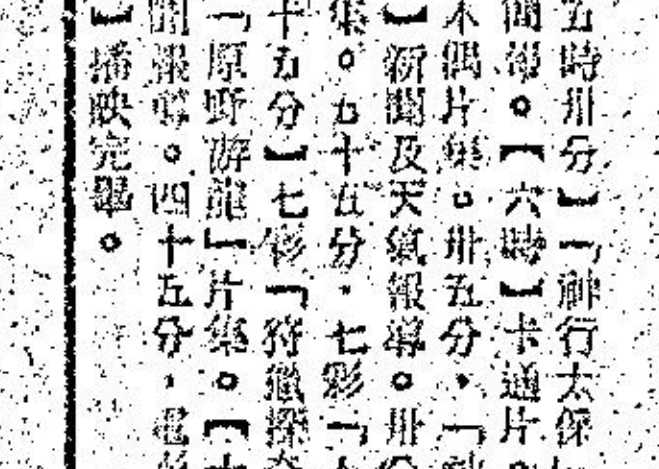 五時卅分】「神行太保
簡報。【六時】卡通片。
木偶片集。卅五分，「
】新聞及天氣報導。卅
集。五十五分，七彩「
十五分】七彩「狩獵探
「原野游龍」片集。【
聞報導。四十五分，
】播映完畢。